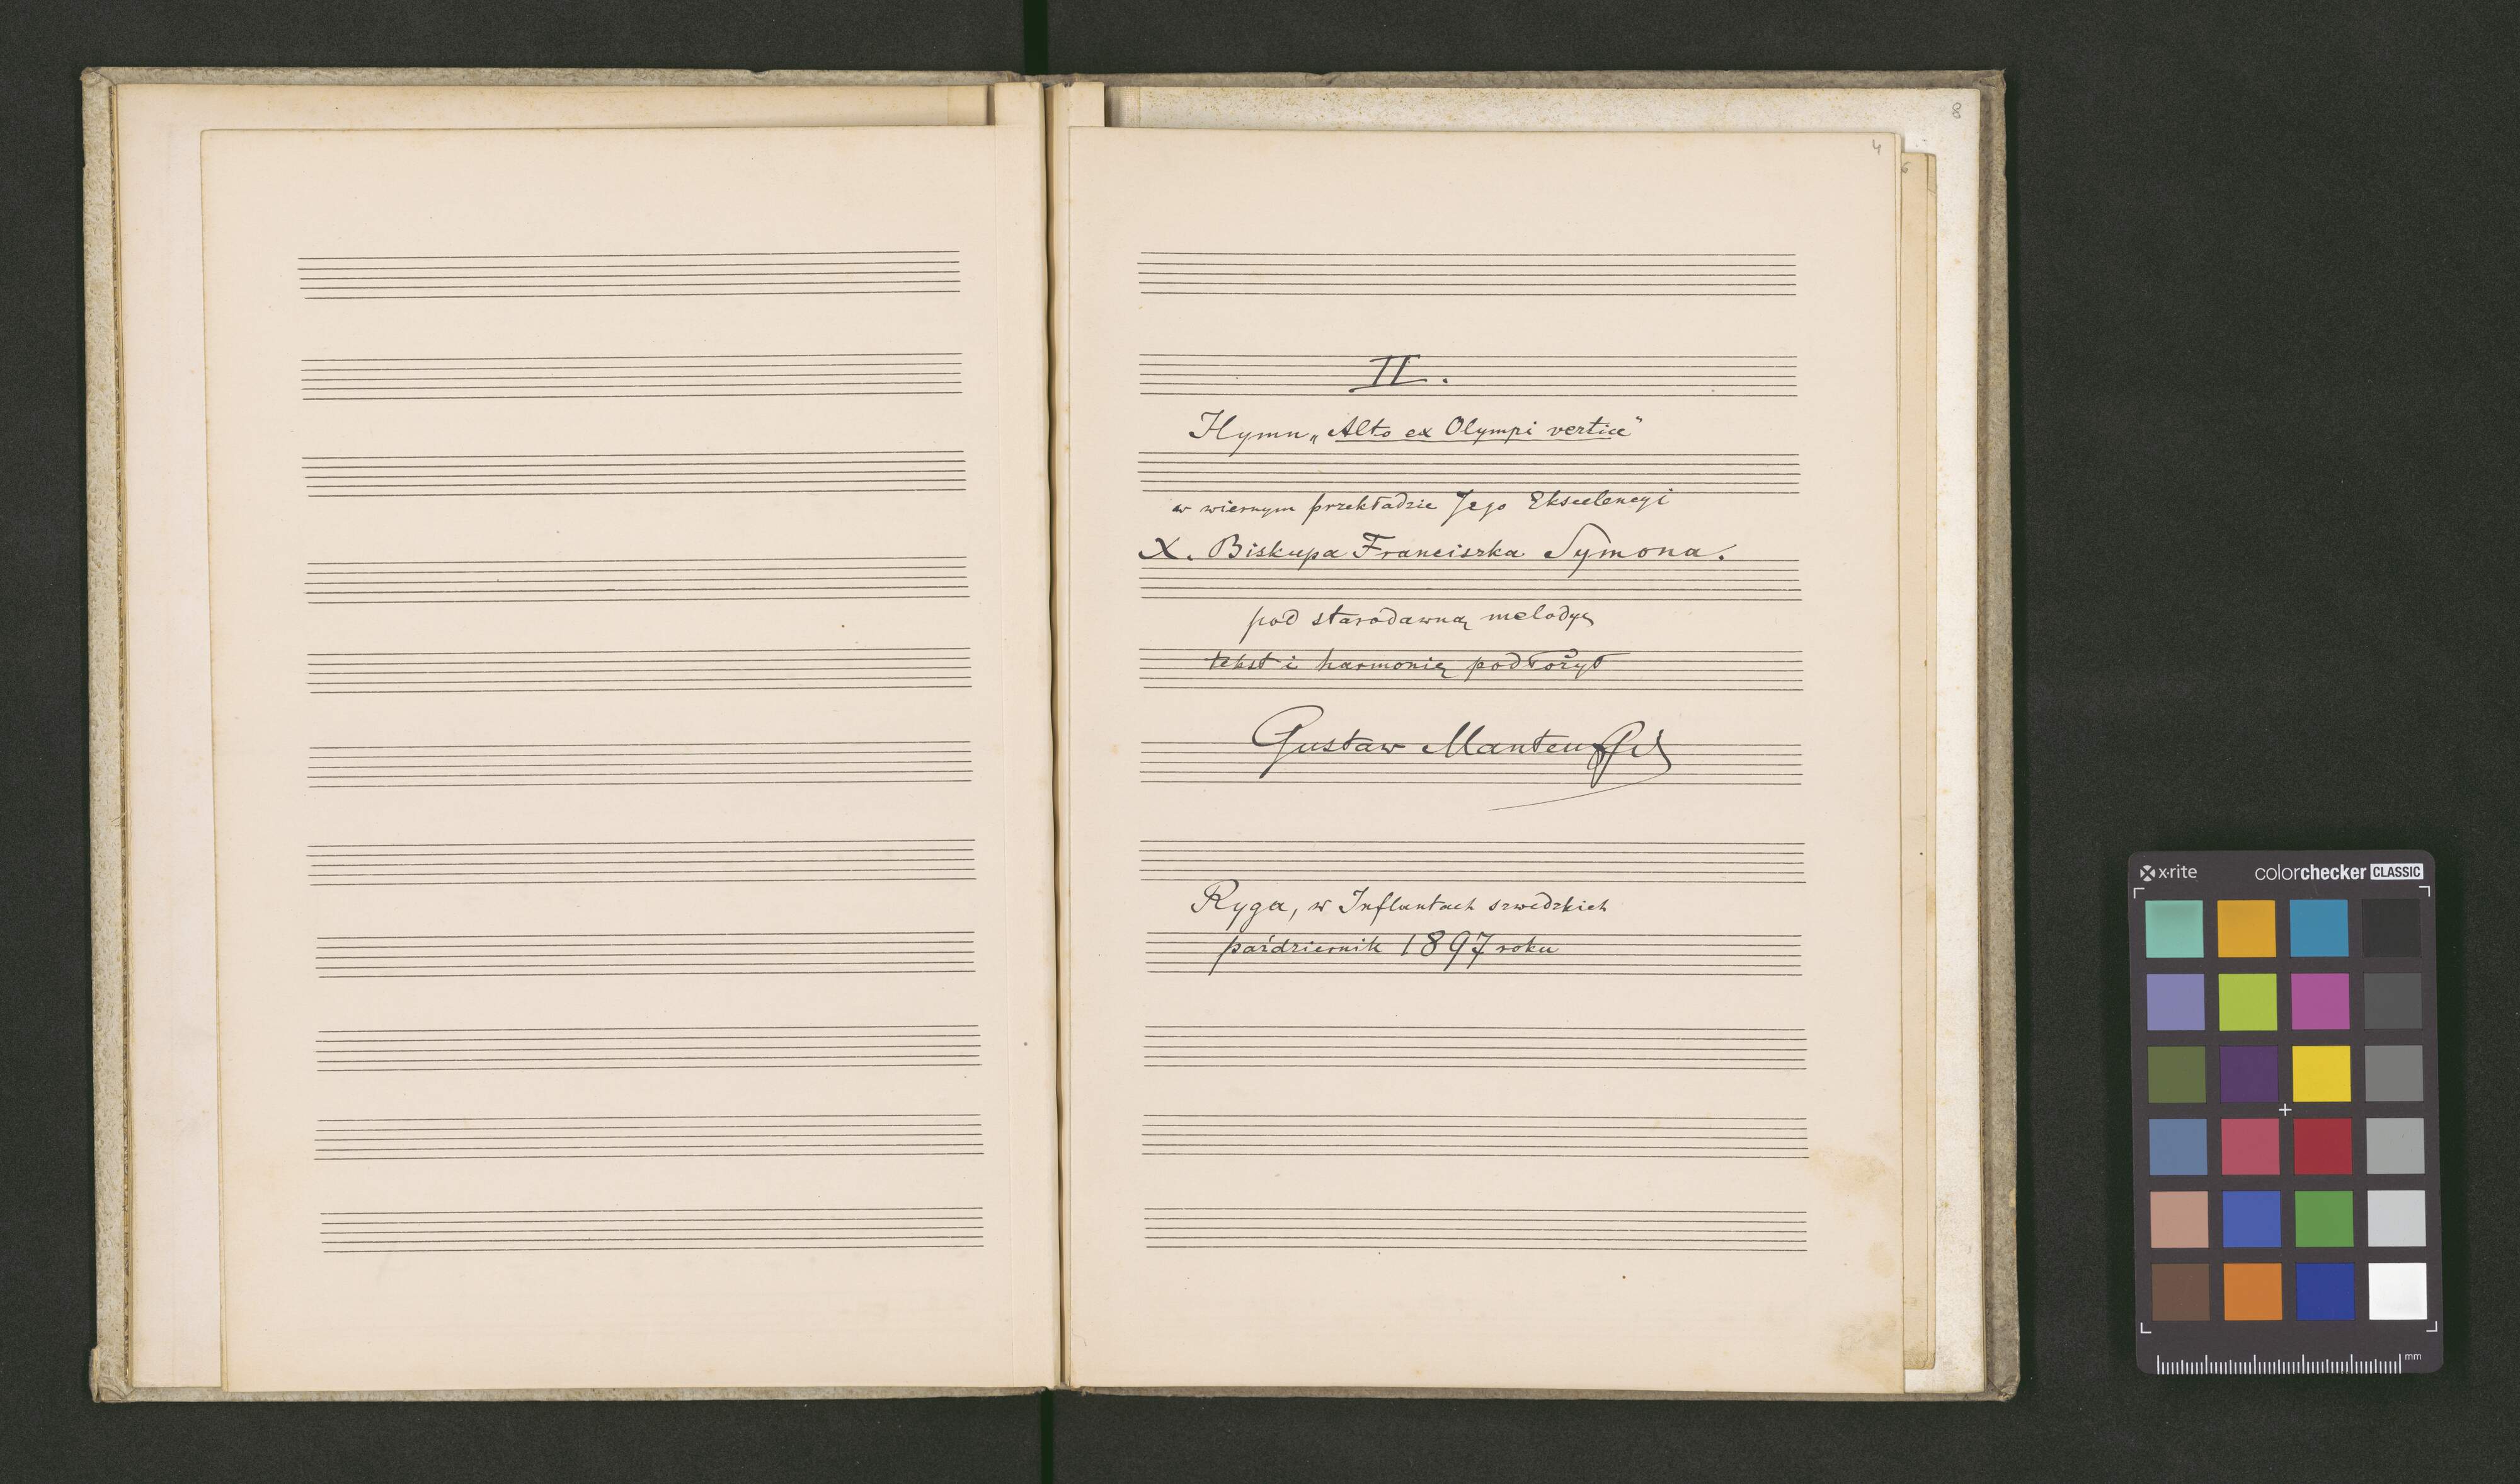 8
4
6
II.
Hymn „Alto ex Olympi vertice"
w wiernym przekładzie Jego Ekscelencyi
X. Biskupa Franciszka Symona.
pod starodawną melodyę
tekst i harmonię podłożył
Gustaw Manteuffel
Ryga, w Inflantach szwedzkich
październik 1897 roku
x·rite colorchecker CLASSIC
mm